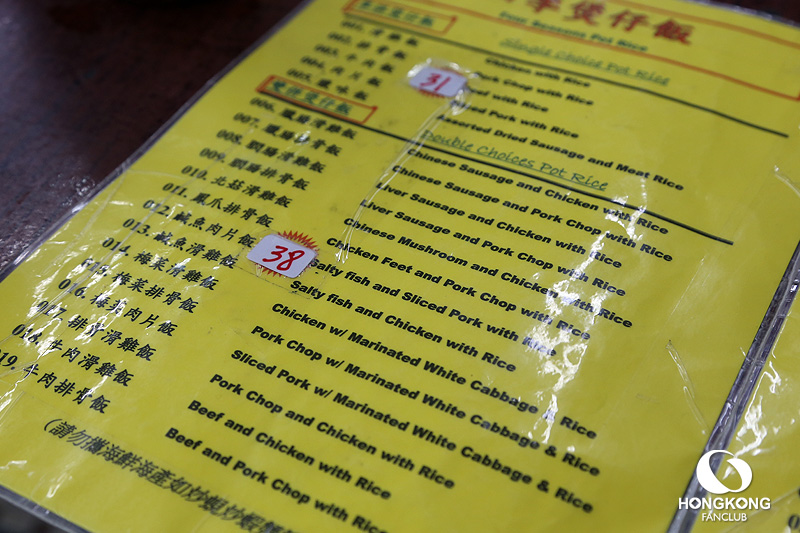 季煲仔飯
Four Seasons Pot Rice
Single Choice Pot Rice
001. 滑雞飯 Chicken with Rice
002. 排骨飯 Pork Chop with Rice
003. 牛肉飯 Beef with Rice
31
004. 肉片飯 Pork with Rice
005. 臘味飯 Assorted Dried Sausage and Meat Rice
雙拼煲仔飯 Double Choices Pot Rice
006. 臘腸滑雞飯 Chinese Sausage and Chicken with Rice
007. 臘腸排骨飯 Chinese Sausage and Pork Chop with Rice
008. 膶腸滑雞飯 Liver Sausage and Chicken with Rice
009. 膶腸排骨飯 Liver Sausage and Pork Chop with Rice
010. 北菇滑雞飯 Chinese Mushroom and Chicken with Rice
011. 鳳爪排骨飯 Chicken Feet and Pork Chop with Rice
012. 鹹魚肉片飯 Salty fish and Sliced Pork with Rice
38
013. 鹹魚滑雞飯 Salty fish and Chicken with Rice
014. 梅菜滑雞飯 Chicken w/ Marinated White Cabbage & Rice
015. 梅菜排骨飯 Pork Chop w/ Marinated White Cabbage & Rice
016. 梅菜肉片飯 Sliced Pork w/ Marinated White Cabbage & Rice
017. 排骨滑雞飯 Pork Chop and Chicken with Rice
018. 牛肉滑雞飯 Beef and Chicken with Rice
019. 牛肉排骨飯 Beef and Pork Chop with Rice
(請勿攜海鮮海產如炒蜆炒蝦
HONGKONG
FANCLUB